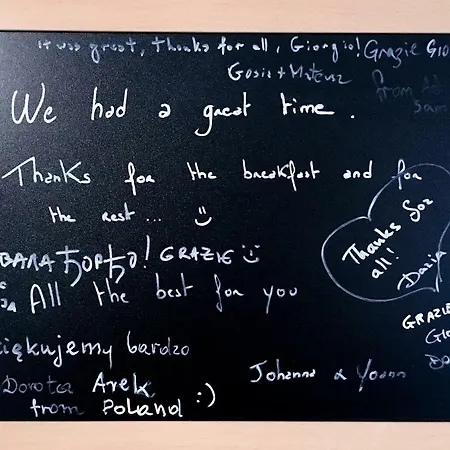 It was great, thanks for all, Giorgio! Grazie Gio
Gosia + Mateusz
from
Sam
We had a great time.
Thanks for the breakfast and for
the rest... :)
Thanks for
all!
Daria
ВАЛА ЂОРЂО! GRAZIE :)
ЈА
All the best for you
GRAZIE
iękujemy bardzo
Johanna & Yoann
Dorota Arek :)
from Poland